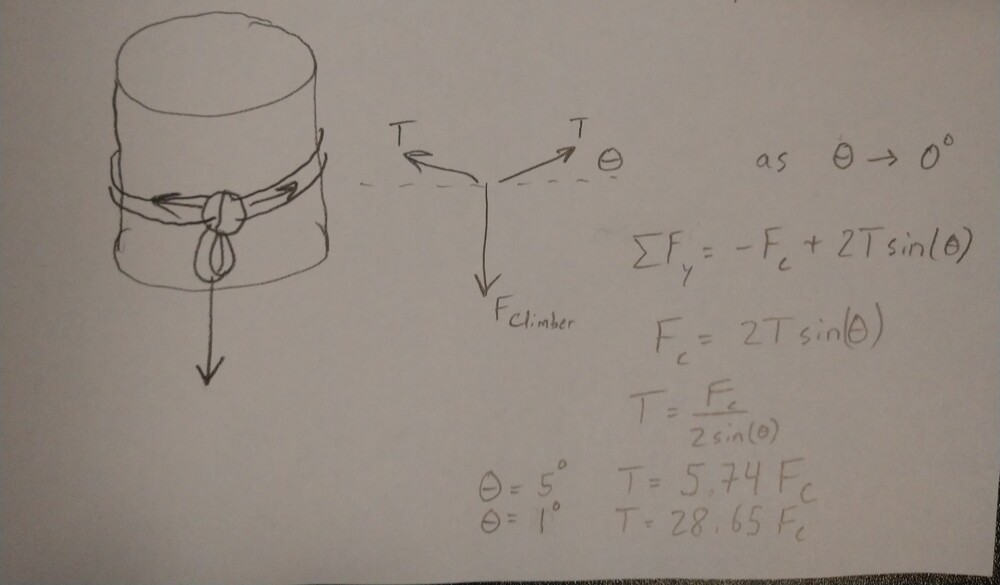 T T θ
F_climber
as θ → 0°
ΣF_y = -F_c + 2T sin(θ)
F_c = 2T sin(θ)
T = F_c / 2 sin(θ)
θ = 5° T = 5.74 F_c
θ = 1° T = 28.65 F_c